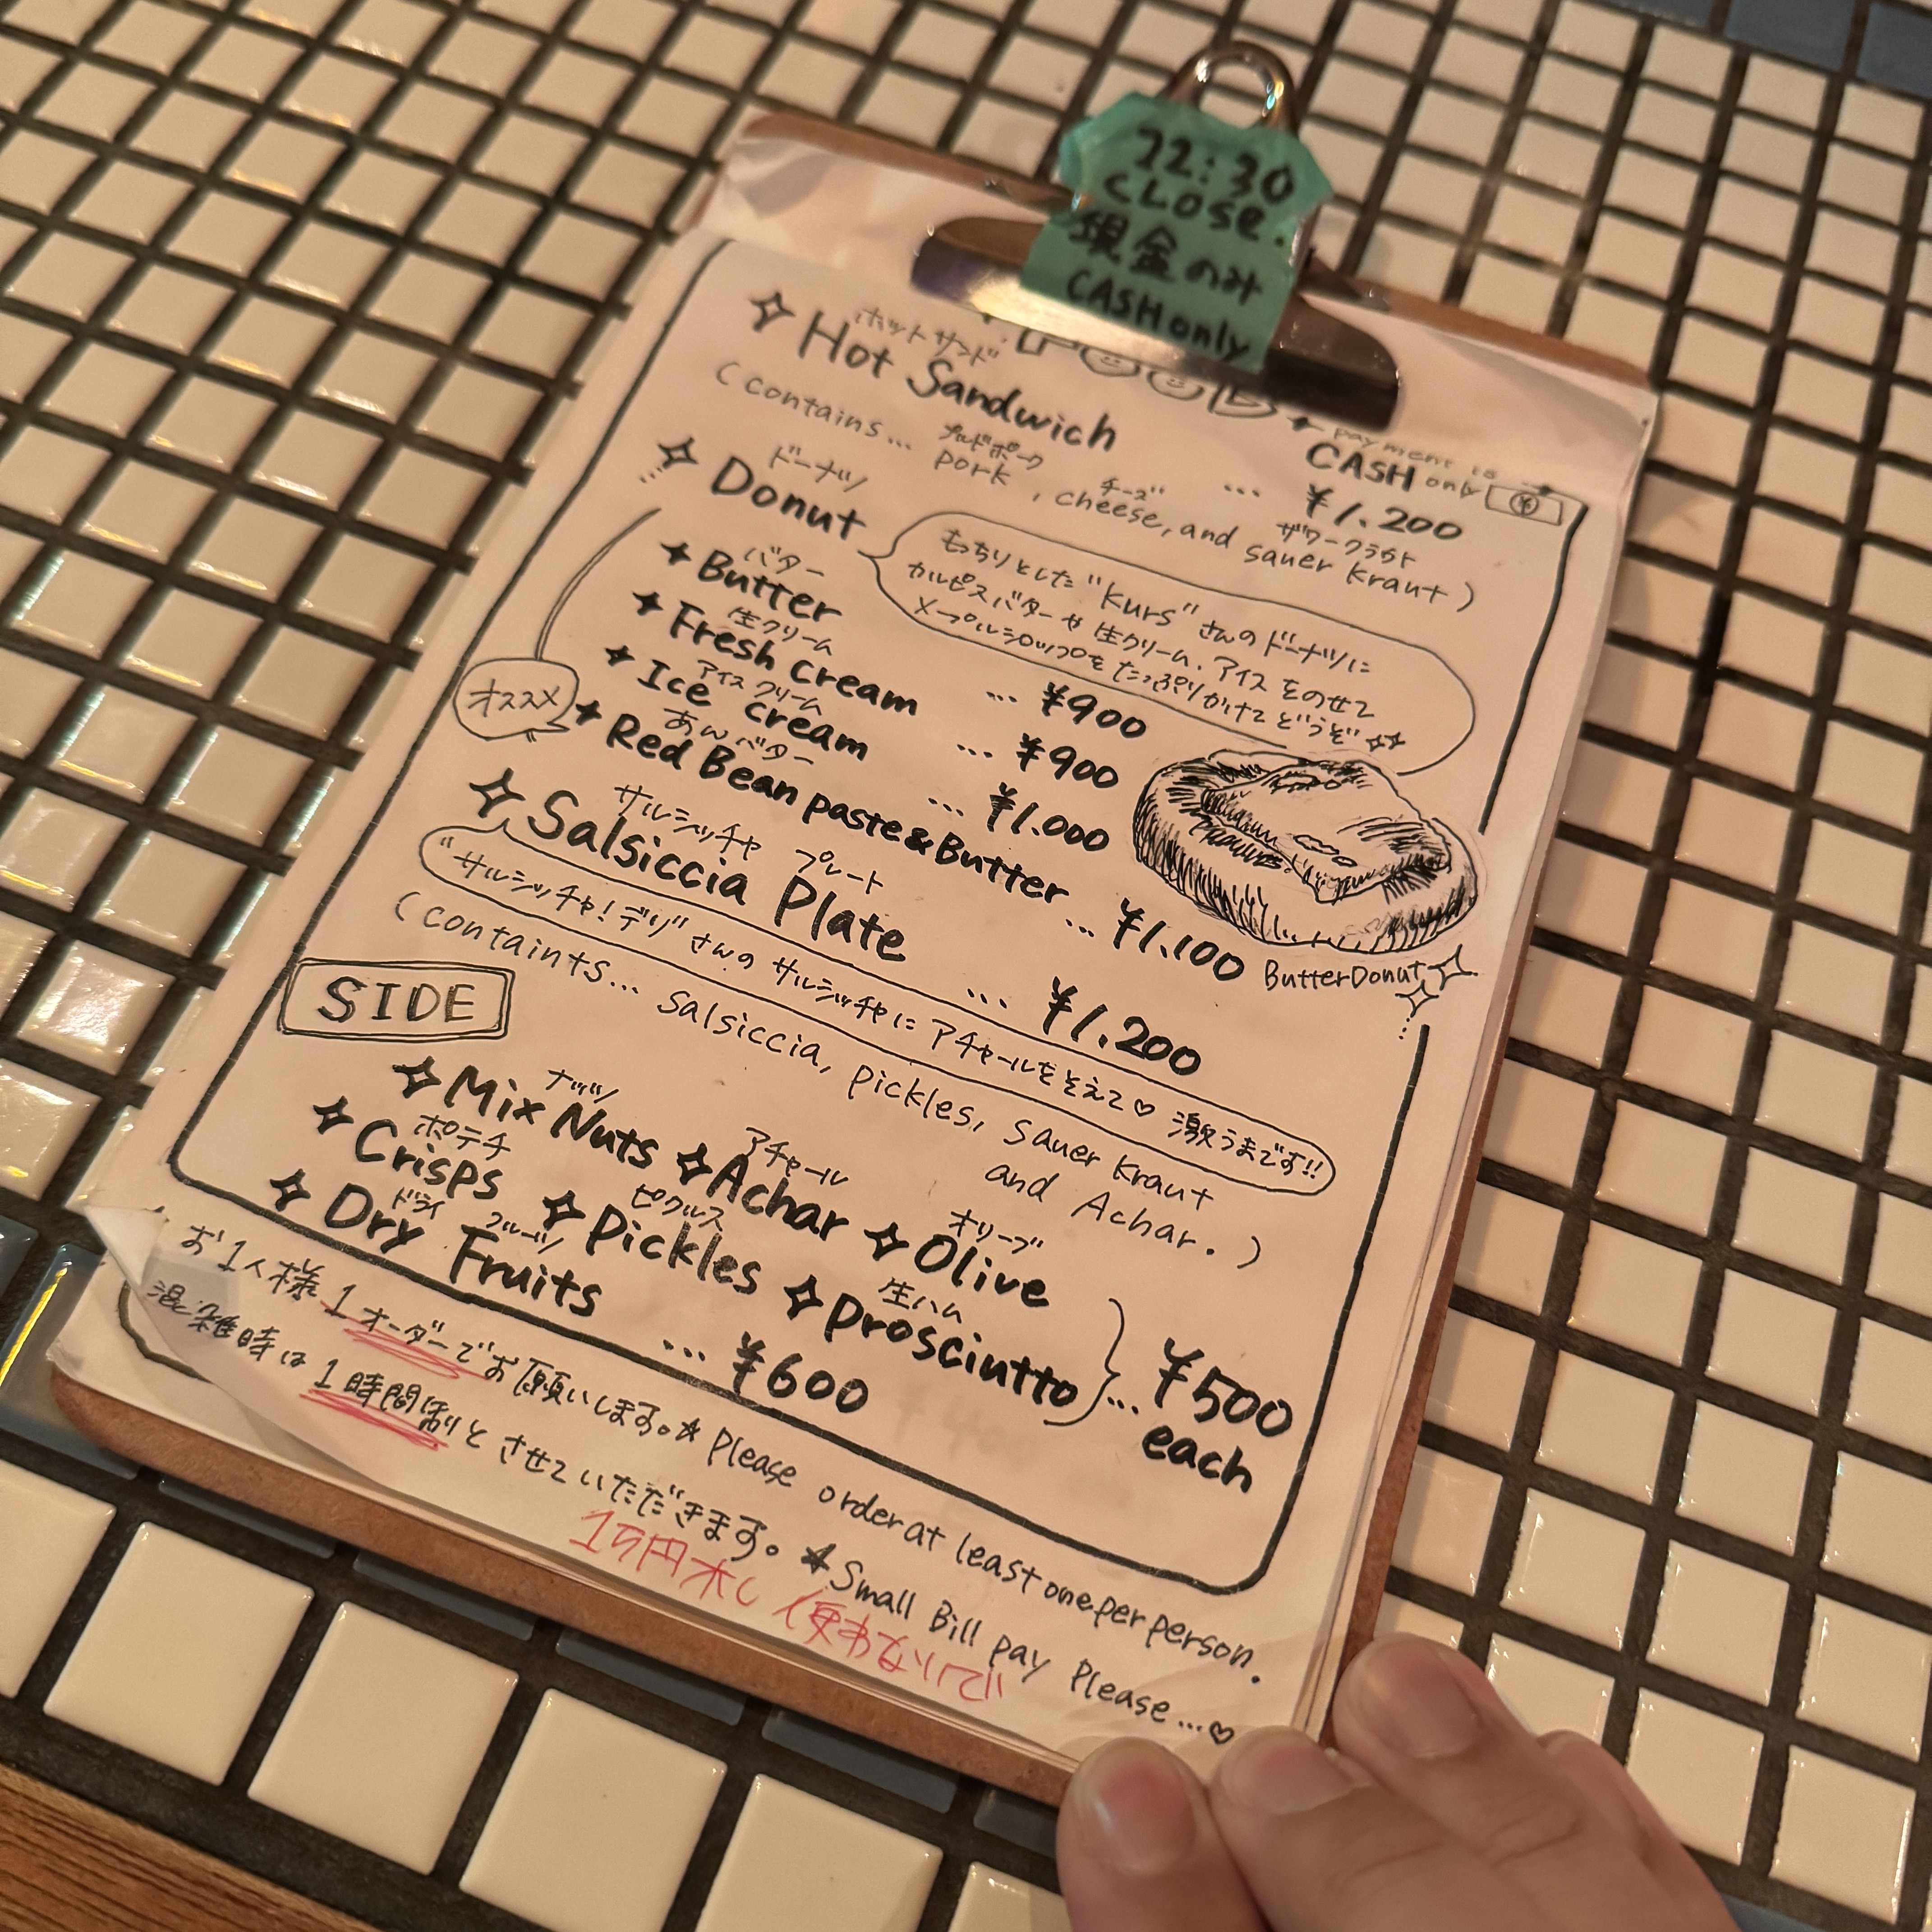 22:30
CLOSE.
現金のみ
CASH only
FOOD
payment is
CASH only
ホットサンド
Hot Sandwich ... ¥1.200
プルドポーク チーズ ザワークラウト
(contains... pork, cheese, and sauer kraut)
ドーナツ
Donut
もっちりとした"kurs"さんのドーナツに
カルピスバターや生クリーム、アイスをのせて
メープルシロップをたっぷりかけてどうぞ
バター
Butter ... ¥900
生クリーム
Fresh cream ... ¥900
アイスクリーム
Ice cream ... ¥1.000
オススメ
あんバター
Red Bean paste&Butter ... ¥1.100
ButterDonut
サルシッチャ プレート
Salsiccia Plate ... ¥1.200
"サルシッチャ!デリ"さんのサルシッチャにアチャールをそえて♡ 激うまです!!
(containts... salsiccia, pickles, sauer kraut
and Achar.)
SIDE
ナッツ アチャール オリーブ
Mix Nuts Achar Olive
ポテチ ピクルス 生ハム
Crisps Pickles Prosciutto ... ¥500
each
ドライ フルーツ
Dry Fruits ... ¥600
お1人様1オーダーでお願いします。* Please order at least one per person.
混雑時は1時間制とさせていただきます。*Small Bill pay Please...♡
1万円札 使わないで